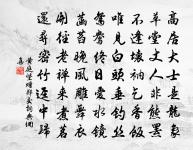 高居大士是龍象
草堂丈人非熊羆
不逢壞衲乞香飯
唯見白頭垂釣絲
鴛鴦終日愛水鏡
菡萏晚風雕舞衣
開徑老禪來煮茗
還尋密竹逕中歸
黄庭堅贈鄭交詞典網